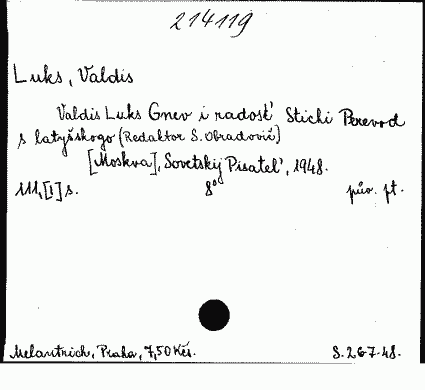 214119
Luks, Valdis
Valdis Luks Gnev i radost' Stichi Perevod
s latyšskogo (Redaktor S. Obradovič)
[Moskva], Sovetskij Pisatel', 1948.
111, [1] s. 8° pův. pt.
Melantrich, Praha, 7,50 Kčs. S. 267-48.